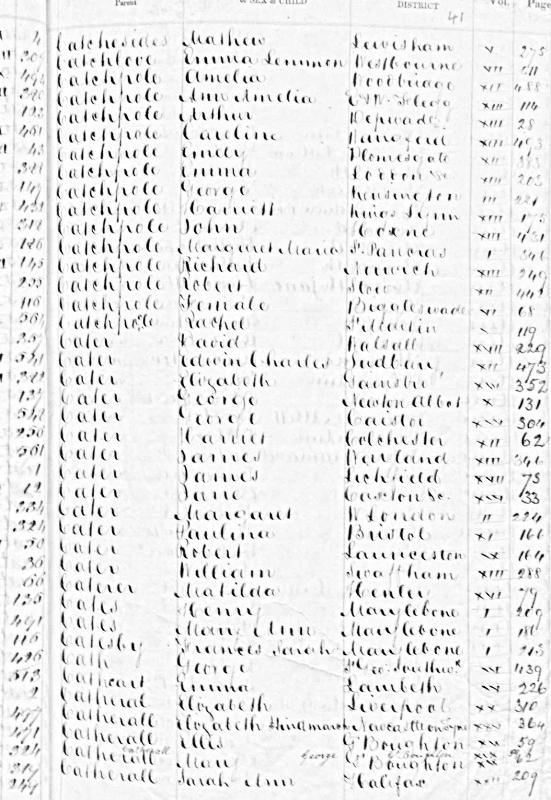 Parent & SEX & CHILD DISTRICT Vol. Page
41
4 Catchesides Mathew Lewisham V 275
Catchlove Emma Lemmon Westbourne VII 511
494 Catchpole Amelia Woodbridge XII 488
Catchpole Ann Amelia XIII 114
Catchpole Arthur Depwade XIII 28
461 Catchpole Caroline Wangford XIII 493
43 Catchpole Emily Plomesgate XII 383
Catchpole Emma Loddon &c XIII 203
149 Catchpole George Kensington III 221
431 Catchpole Harriett Kings Lynn XIII 175
312 Catchpole John Hoxne XIII 431
126 Catchpole Margaret Maria St Pancras I 341
143 Catchpole Richard Norwich XIII 249
233 Catchpole Robert Stow XII 442
116 Catchpole Female Biggleswade VI 68
361 Catchpole Rachel St Martin V 119
257 Cater David Walsall XVII 229
521 Cater Edwin Charles Sudbury 473
321 Cater Elizabeth Gainsbro' 352
137 Cater George Newton Abbot X 131
542 Cater George Caistor 304
256 Cater Harriet Colchester XII 62
361 Cater James XIII 346
1 Cater James Lichfield XVII 75
12 Cater Jane Caxton &c. XIV 33
234 Cater Margaret W London II 224
324 Cater Paulina Bristol XI 166
50 Cater Robert Launceston IX 164
36 Cater William Swaffham XIII 288
66 Caterer Matilda Henley XVI 79
135 Cates Henry Marylebone I 209
491 Cates Mary Ann Marylebone I 180
116 Catesby Frances Sarah Marylebone I 213
426 Cath George St Geo. Southwk 439
513 Cathcart Emma Lambeth 226
2 Catheral Elizabeth Liverpool XX 310
477 Catherall Elizabeth Hindmarsh Newcastle on Tyne XXV 364
471 Catherall Ellis Gt Boughton XIX 59
Catherall George Gt Boughton
524 Catherall Mary Gt Boughton XIX 62
247 Catherall Sarah Ann Halifax XXII 209